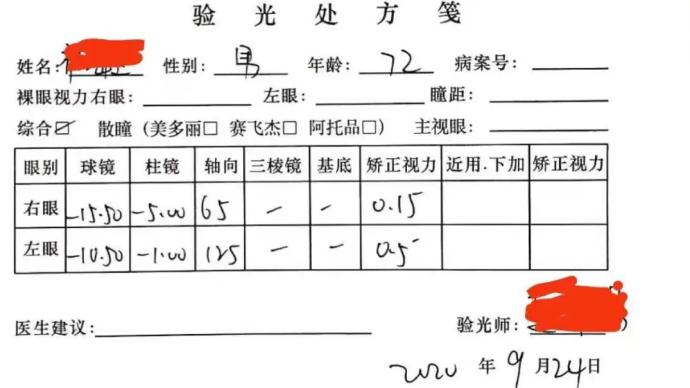 验光处方笺
姓名: 性别: 男 年龄: 72 病案号:
裸眼视力右眼: 左眼: 瞳距:
综合☑ 散瞳 (美多丽□ 赛飞杰□ 阿托品□) 主视眼:
眼别 球镜 柱镜 轴向 三棱镜 基底 矫正视力 近用.下加 矫正视力
右眼 -15.50 -5.00 65 – – 0.15
左眼 -10.50 -1.00 125 – – 0.5
医生建议: 验光师:
2020 年 9 月 24 日